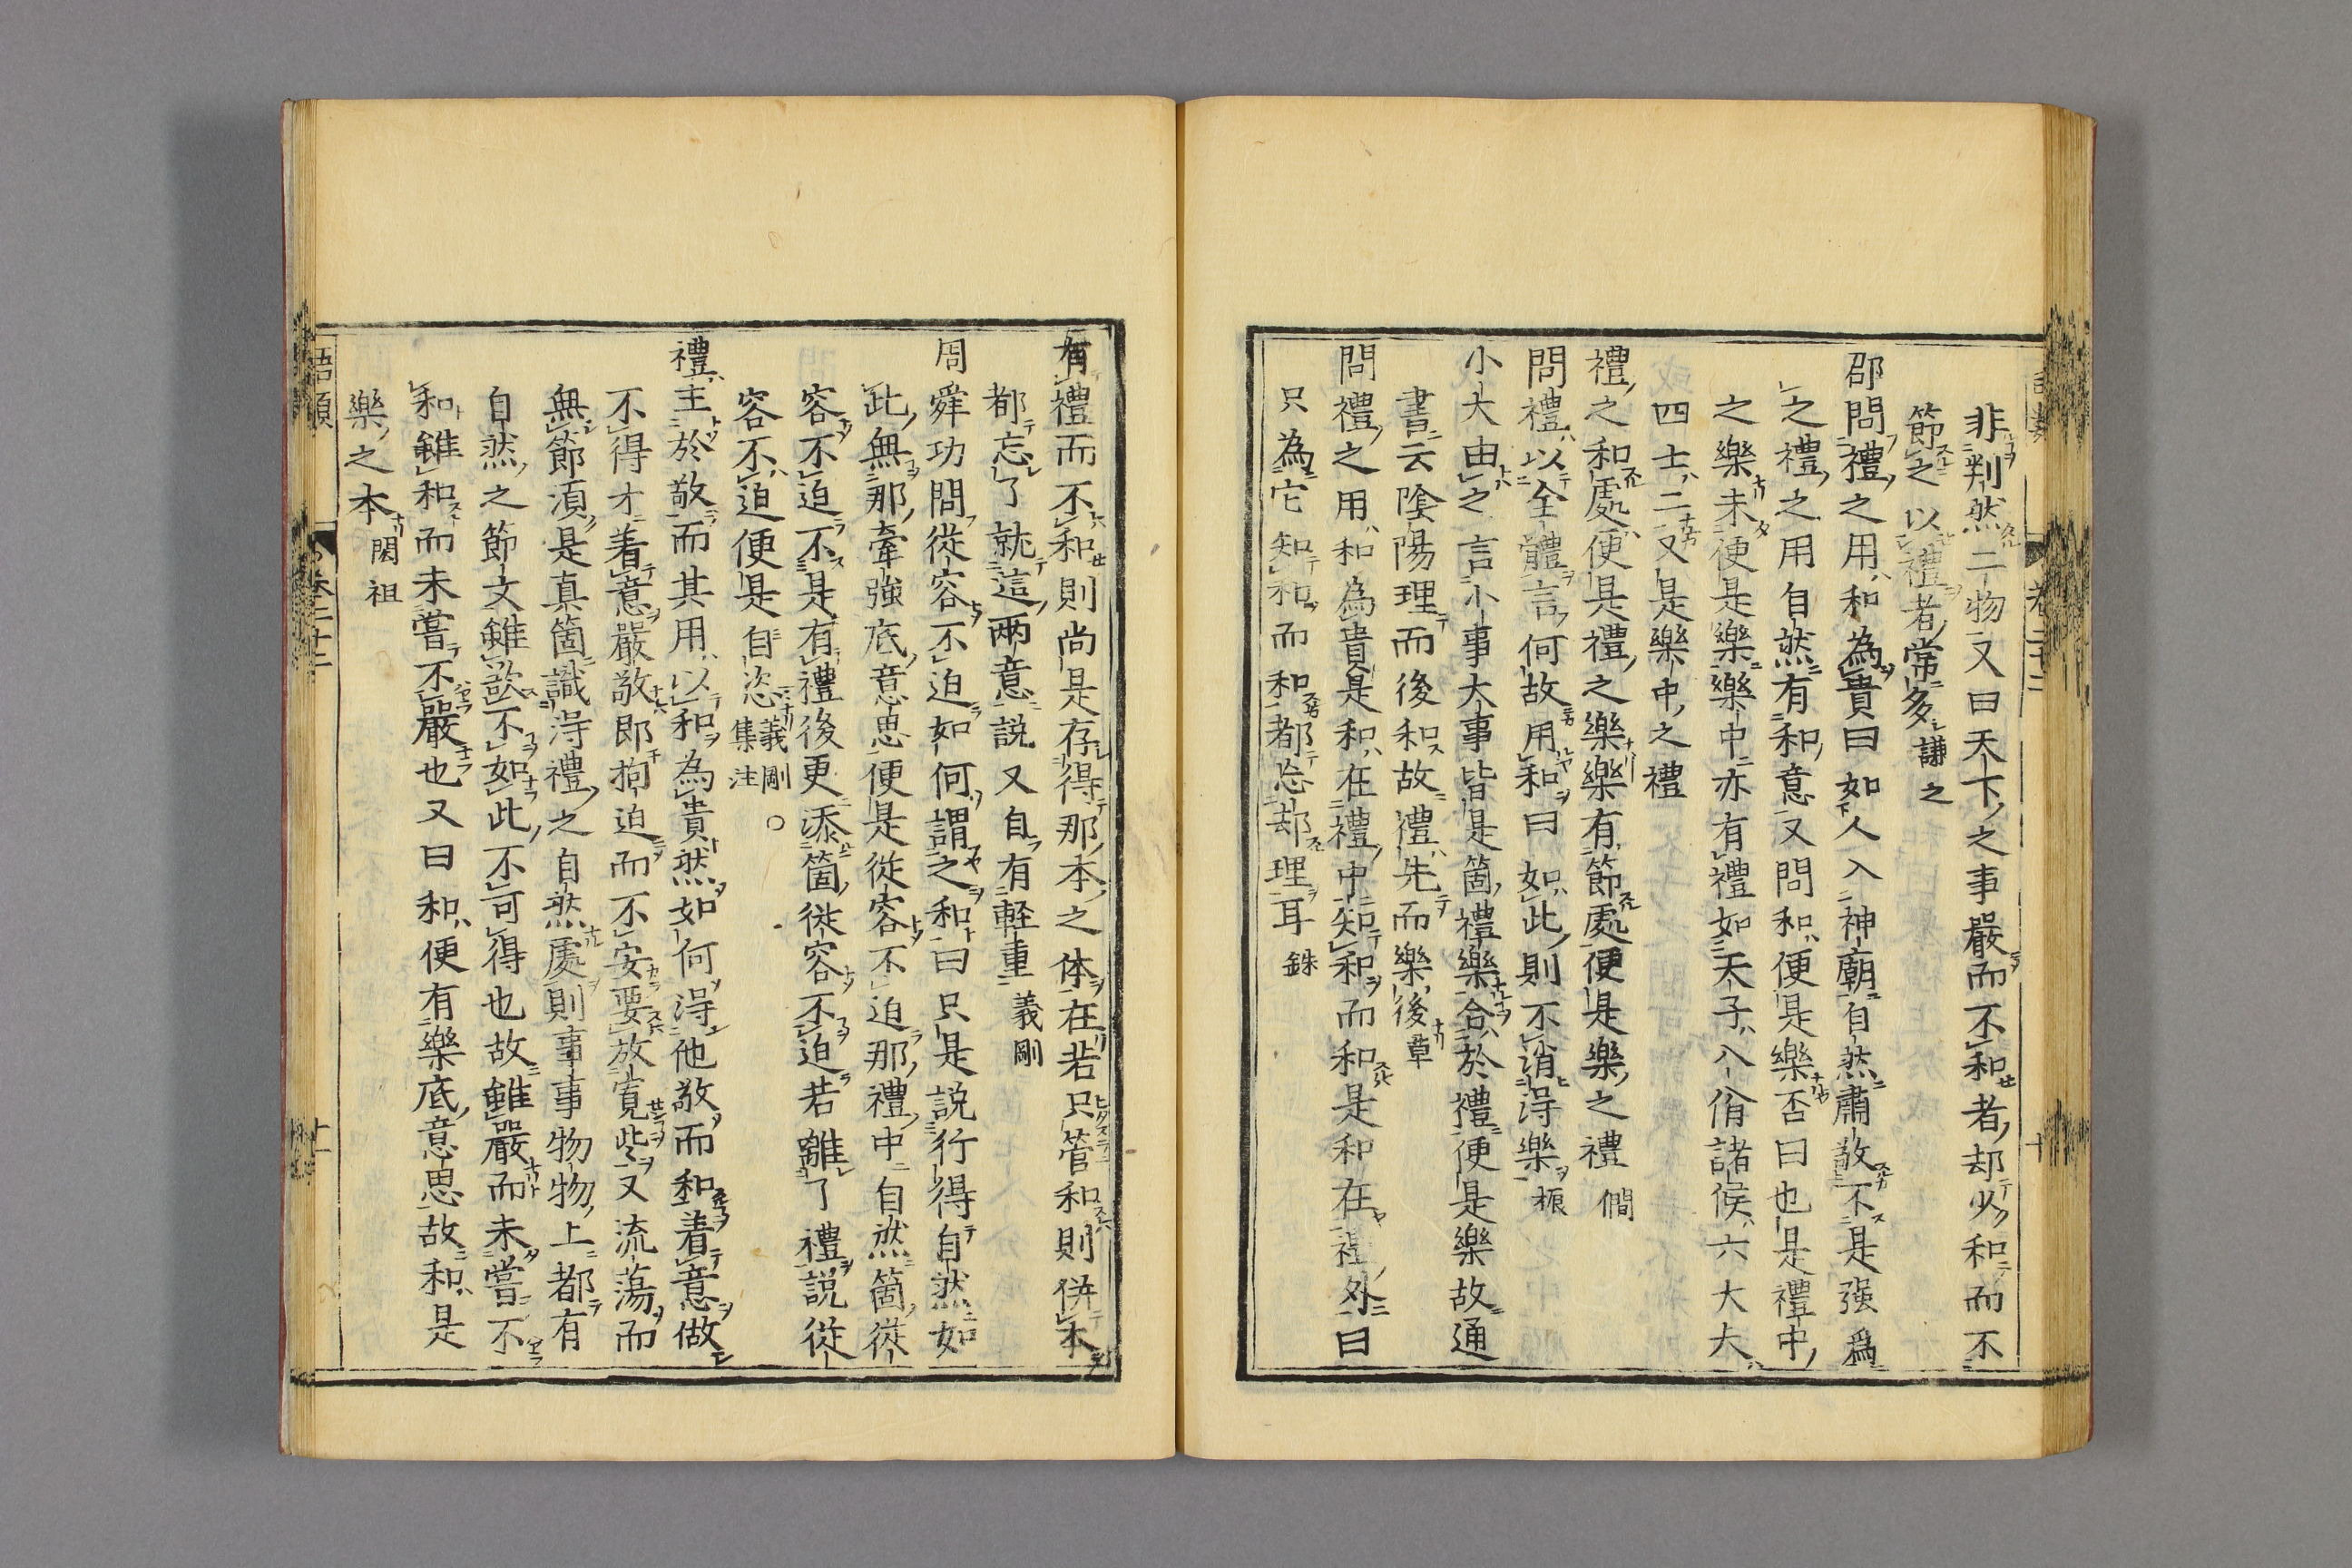 非判然二物又曰天下之事嚴而不和者却少和而不
節之以禮者常多 謙之
邵問禮之用和為貴曰如人入神廟自然肅敬不是强爲
之禮之用自然有和意又問和便是樂否曰也是禮中
之樂未便是樂樂中亦有禮如天子八佾諸侯六大夫
四士二又是樂中之禮
禮之和處便是禮之樂樂有節處便是樂之禮 僴
問禮以全體言何故用和曰如此則不消得樂 振
小大由之言小事大事皆是箇禮樂合於禮便是樂故通
書云陰陽理而後和故禮先而樂後 章
問禮之用和為貴是和在禮中知和而和是和在禮外曰
只為它知和而和都忘却理耳 銖
有禮而不和則尚是存得那本之体在若只管和則併本
都忘了就這兩意説又自有軽重 義剛
周舜功問從容不迫如何謂之和曰只是説行得自然如
此無那牽強底意思便是從容不迫那禮中自然箇從
容不迫不是有禮後更添箇從容不迫若離了禮説從
容不迫便是自恣 義剛集注○
禮主於敬而其用以和為貴然如何得他敬而和着意做
不得才着意嚴敬即拘迫而不安要放寛些又流蕩而
無節湏是真箇識得禮之自然處則事事物物上都有
自然之節文雖欲不如此不可得也故雖嚴而未嘗不
和雖和而未嘗不嚴也又曰和便有樂底意思故和是
樂之本 閎祖
語類
卷二十二
十一
卷二十二
十